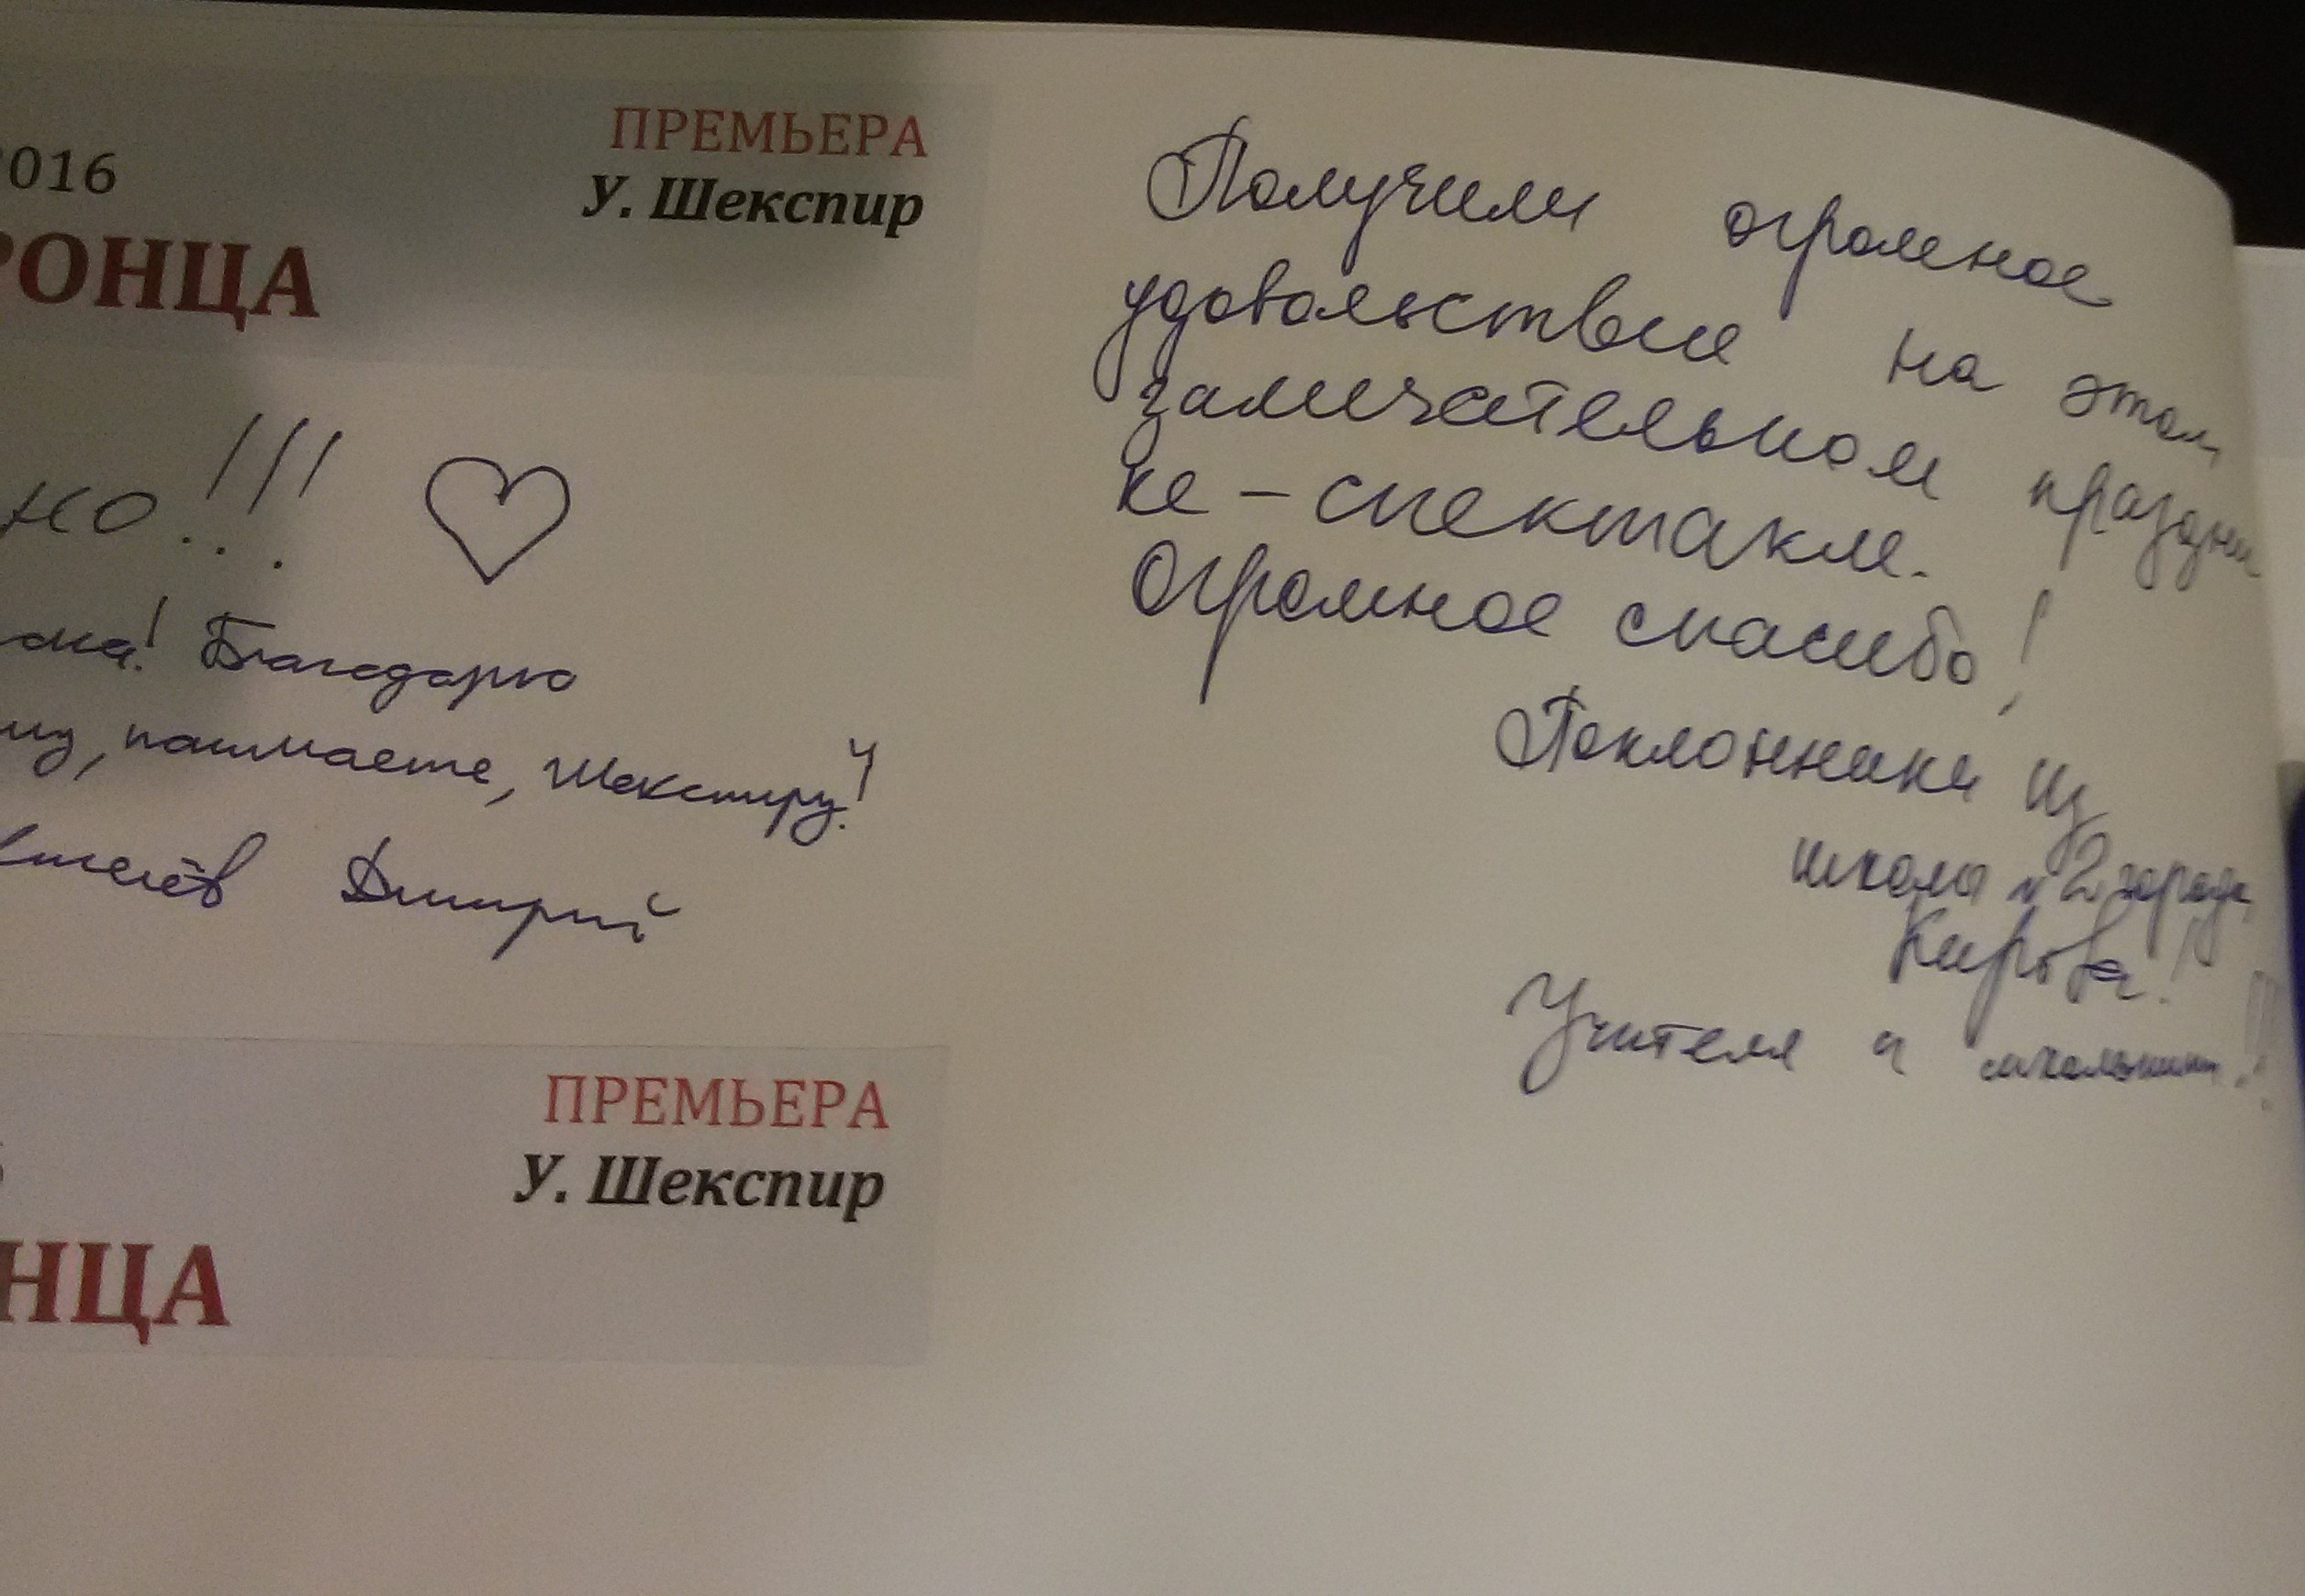 2016
ПРЕМЬЕРА
У. Шекспир
РОНЦА
но!!!
Благодарю
понимаете, Шекспиру!
Дмитрий
ПРЕМЬЕРА
У. Шекспир
НЦА
Получили огромное
удовольствие на этом
замечательном праздни
ке - спектакле.
Огромное спасибо!
Поклонники из
школы №2 города
Кирова!
Учителя и школьники!!